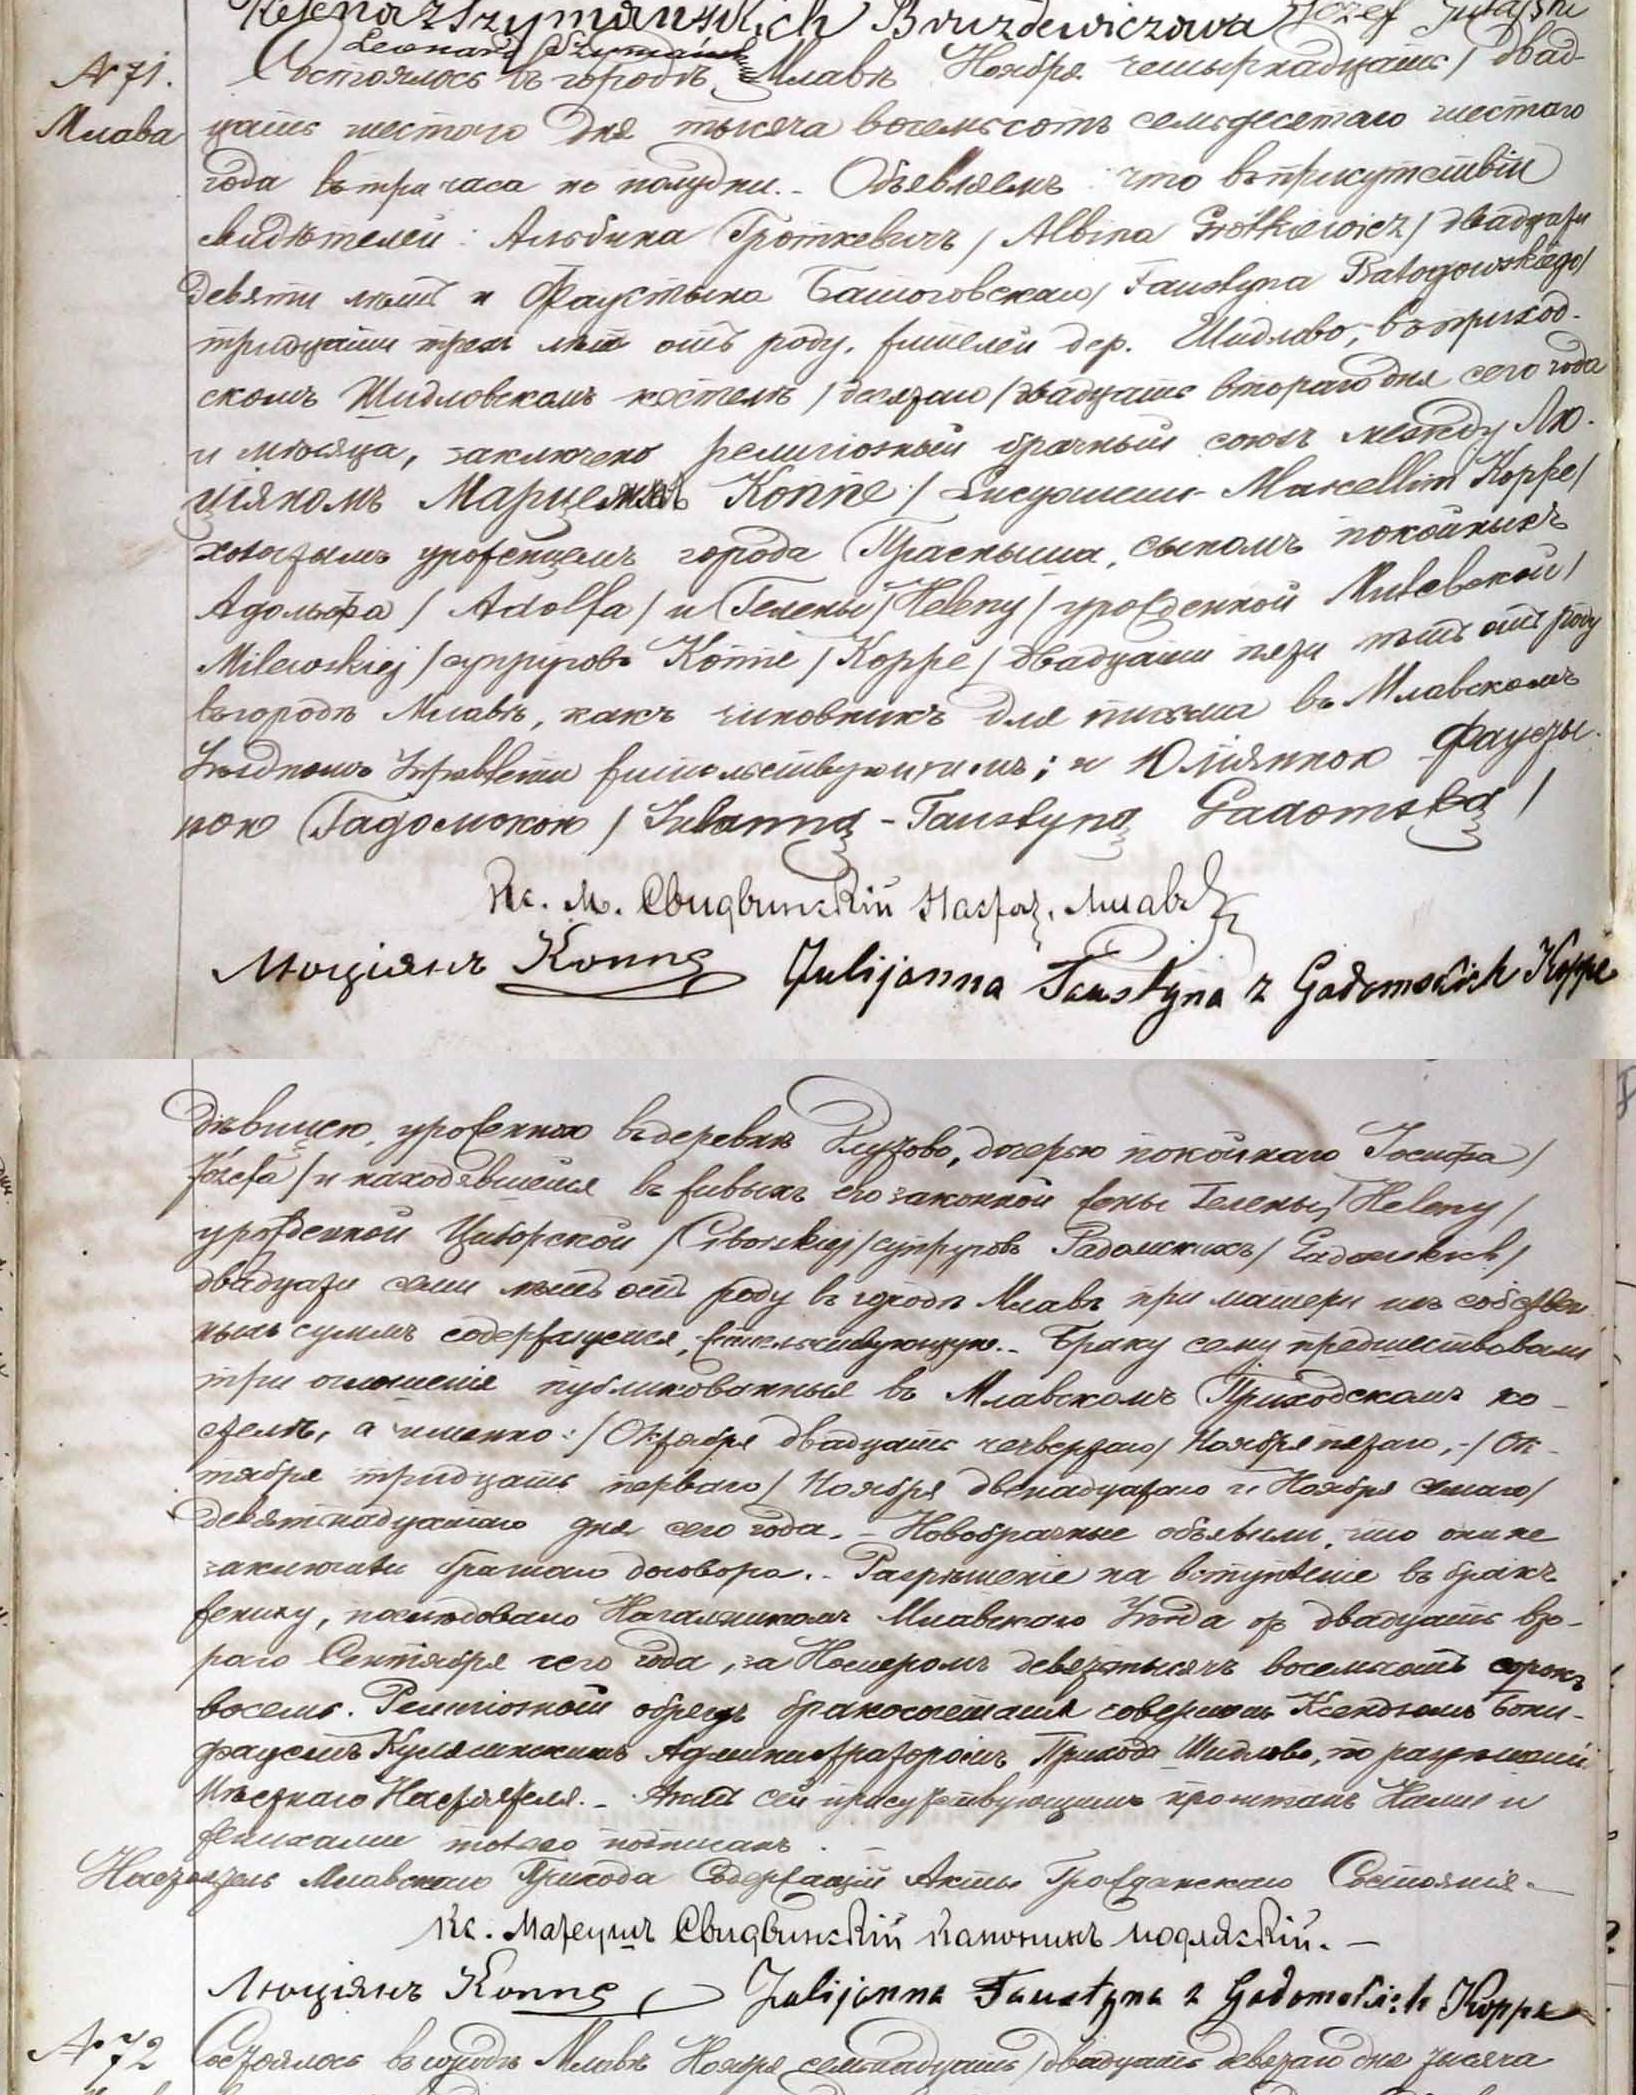 Helena z Szymańskich Bruzdewiczowa Józef
Leonard Szymański
№ 71.
Млава
Состоялось въ городѣ Млавѣ Ноября четырнадцать / двад-
цать шестого дня тысяча восемьсотъ семьдесятаго шестаго
года въ три часа по полудни. - Объявляемъ что въ присутствіи
свидѣтелей: Альбина Гроткевичъ / Albina Grótkiewicz / двадцати
девяти лѣтъ и Фаустына Батоговскаго / Faustyna Batogowskiego /
тридцати трехъ лѣтъ отъ роду, жителей дер. Шидлово, въ приход-
скомъ Шидловскомъ костелѣ / десятаго / двадцать втораго дня сего года
и мѣсяца, заключено религіозный брачный союзъ между Лю-
ціяномъ Марцеллимъ Коппе / Lucyanem - Marcellim Koppe /
холостымъ урожденцемъ города Прасныша, сыномъ покойныхъ
Адольфа / Adolfa / и Гелены / Heleny / урожденной Милевской /
Milewskiej / супруговъ Коппе / Koppe / двадцати пяти лѣтъ отъ роду
въ городѣ Млавѣ, какъ чиновникъ для письма въ Млавскомъ
Уѣздномъ Управленіи жительствующимъ; и Юліянною Фаусты-
ною Гадомскою / Julianną - Faustyną Gadomską /
Кс. М. Свидвинскій Настоя. Млавс
Люціянъ Коппе Julijanna Faustyna z Gadomskich Koppe
дѣвицею, урожденною въ деревнѣ Глужово, дочерью покойнаго Іосифа /
Józefa / и находявшейся въ живыхъ его законной жены Гелены / Heleny /
урожденной Циборской / Ciborskiej / супруговъ Гадомскихъ / Gadomskich /
двадцати семи лѣтъ отъ роду въ городѣ Млавѣ при матери изъ собствен-
ныхъ суммъ содержащейся, жительствующую. - Браку сему предшествовали
три оглашенія публикованныя въ Млавскомъ Приходскомъ ко-
стелѣ, а именно: / Октября двадцать четвертаго / Ноября пятаго, - / Ок-
тября тридцать перваго / Ноября двенадцатаго и Ноября семаго /
девятнадцатаго дня сего года. - Новобрачные объявили, что они не
заключали брачнаго договора. - Разрѣшеніе на вступленіе въ бракъ
жениху, послѣдовало Начальникомъ Млавскаго Уѣзда отъ двадцать вто-
раго Сентября сего года, за Номеромъ девять тысячъ восемьсотъ сорокъ
восемь. Религіозный обрядъ бракосочетанія совершонъ Ксендзомъ Бони-
фацемъ Администраторомъ Прихода Шидлово, по разрѣшеніи
Мѣстнаго Настоятеля. - Актъ сей присутствующимъ прочитанъ Нами и
женихами только подписанъ.
Настоятель Млавскаго Прихода Содержащій Акты Гражданскаго Состоянія. -
Кс. Матеушъ Свидвинскій Каноникъ Подляскій. -
Люціянъ Коппе, Julijanna Faustyna z Gadomskich Koppe
№ 72 Состоялось въ городѣ Млавѣ Ноября семнадцать / двадцать девятаго дня тысяча